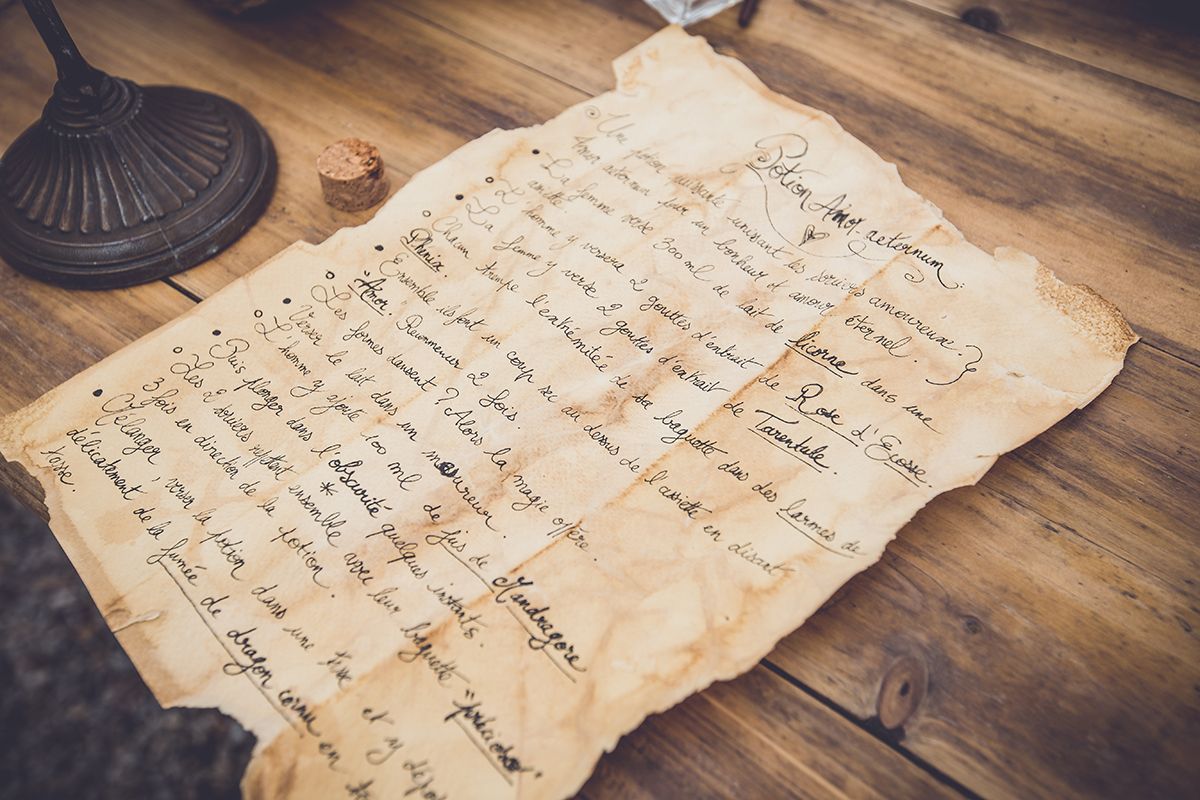 Potion Amor aeternum :
Une potion puissante unissant les sorciers amoureux.
Amor aeternum pur un bonheur et amour éternel.
La femme verse 300 ml de lait de licorne dans une
assiette.
L'homme y versera 2 gouttes d'extrait de Rose d'Ecosse
La femme y verse 2 gouttes d'extrait de Tarentule.
Chacun trempe l'extrémité de sa baguette dans des larmes de
Phénix.
Ensemble ils font un coup sec au dessus de l'assiette en disant
"Amor". Recommencer 2 fois.
Les formes dansent ? Alors la magie opère.
Verser le lait dans un mesureur.
L'homme y ajoute 100 ml de jus de Mandragore
Puis plonger dans l'obscurité quelques instants.
Les 2 sorciers répètent ensemble avec leur baguette "précioso"
3 fois en direction de la potion.
Mélanger, verser la potion dans une tasse et y
délicatement de la fumée de dragon cornu en
tasse.